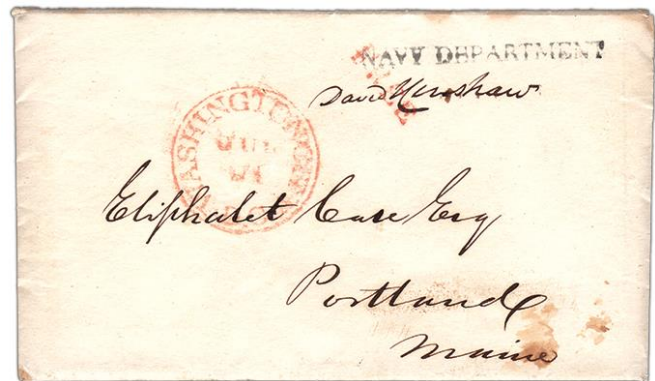 NAVY DEPARTMENT
FREE
David Henshaw
WASHINGTON CITY
D.C.
Eliphalet Case Esq
Portland
Maine